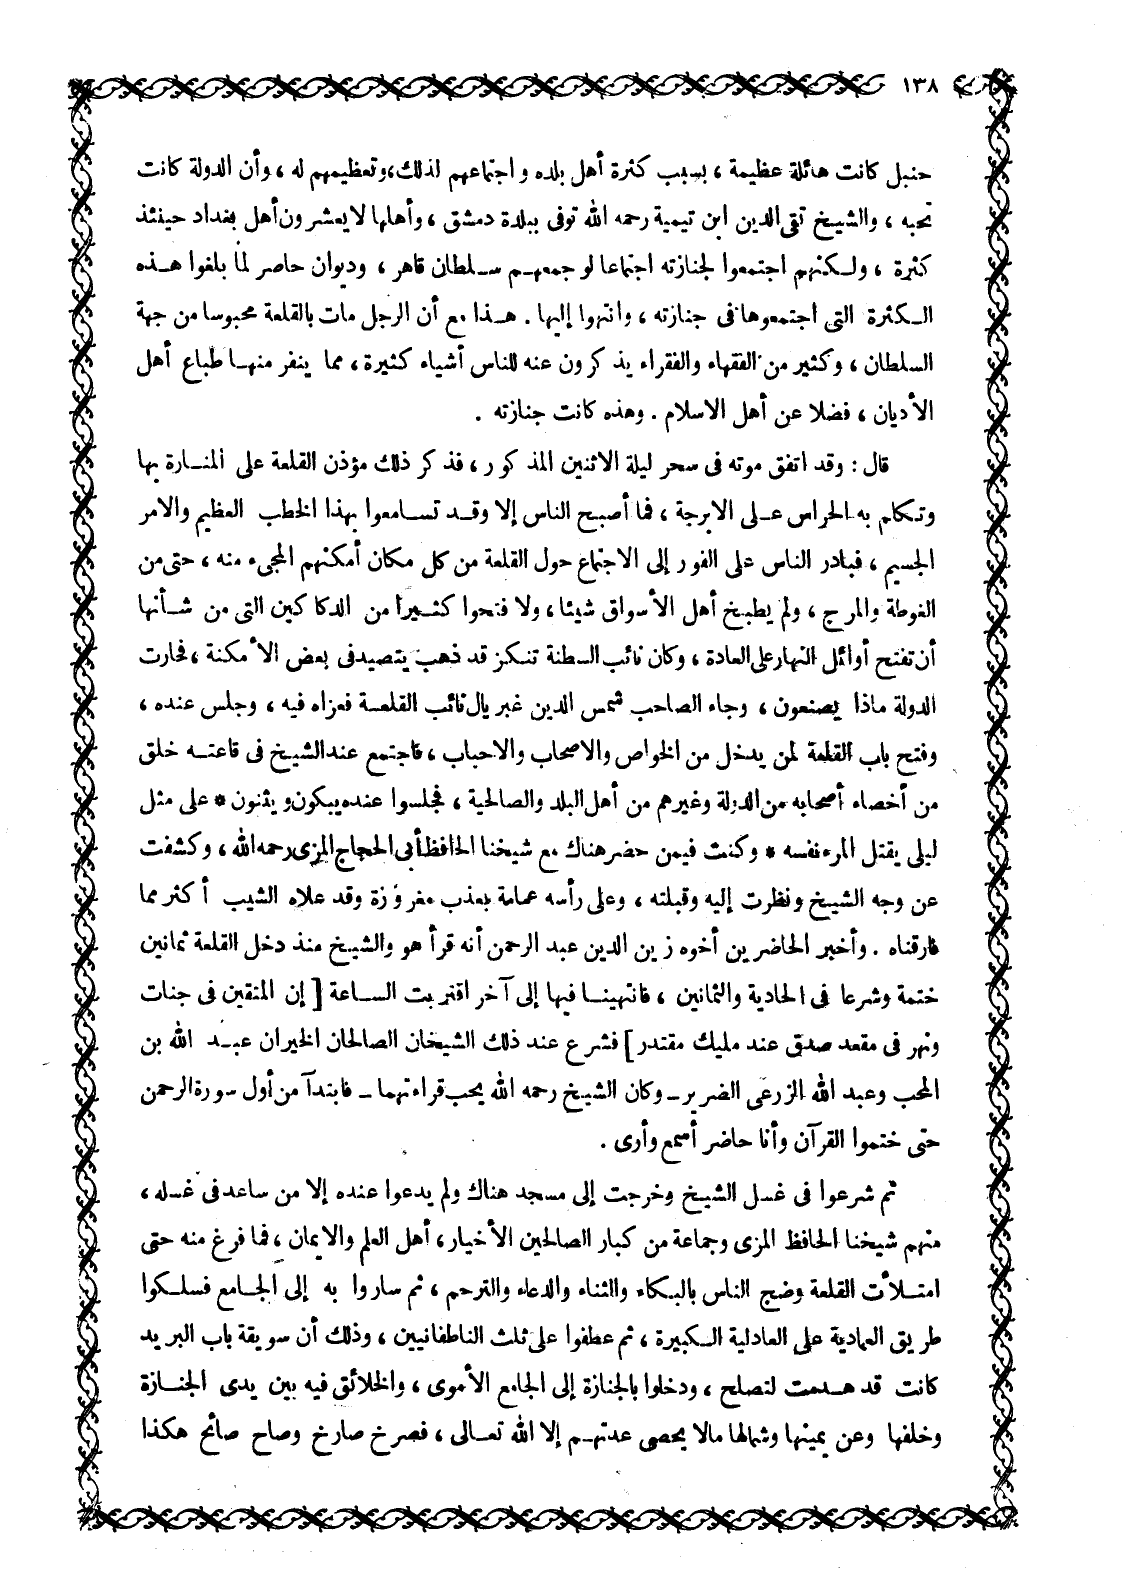 ١٣٨
حنبل كانت هائلة عظيمة ، بسبب كثرة أهل بلده واجتماعهم لذلك، وتعظيمهم له ، وأن الدولة كانت
تحبه ، والشيخ تقى الدين ابن تيمية رحمه الله توفى ببلدة دمشق ، وأهلها لا يعشرون أهل بغداد حينئذ
كثرة ، ولكنهم اجتمعوا لجنازته اجتماعا لو جمعهم سلطان قاهر ، وديوان حاصر لما بلغوا هذه
الكثرة التى اجتمعوها فى جنازته ، وانتهوا إليها . هذا مع أن الرجل مات بالقلعة محبوسا من جهة
السلطان ، وكثير من الفقهاء والفقراء يذكرون عنه للناس أشياء كثيرة ، مما ينفر منها طباع أهل
الأديان ، فضلا عن أهل الاسلام . وهذه كانت جنازته .
قال : وقد اتفق موته فى سحر ليلة الاثنين المذكور ، فذكر ذلك مؤذن القلعة على المنارة بها
وتكلم به الحراس على الابرجة ، فما أصبح الناس إلا وقد تسامعوا بهذا الخطب العظيم والامر
الجسيم ، فبادر الناس على الفور إلى الاجتماع حول القلعة من كل مكان أمكنهم المجىء منه ، حتى من
الغوطة والمرج ، ولم يطبخ أهل الأسواق شيئا ، ولا فتحوا كثيرا من الدكاكين التى من شأنها
أن تفتح أوائل النهار على العادة ، وكان نائب السطنة تنكز قد ذهب يتصيد فى بعض الأمكنة ، فحارت
الدولة ماذا يصنعون ، وجاء الصاحب شمس الدين غبريال نائب القلعة فعزاه فيه ، وجلس عنده ،
وفتح باب القلعة لمن يدخل من الخواص والاصحاب والاحباب ، فاجتمع عند الشيخ فى قاعته خلق
من أخصاء أصحابه من الدولة وغيرهم من أهل البلد والصالحية ، فجلسوا عنده يبكون ويثنون * على مثل
ليلى يقتل المرء نفسه * وكنت فيمن حضر هناك مع شيخنا الحافظ أبى الحجاج المزى رحمه الله ، وكشفت
عن وجه الشيخ ونظرت إليه وقبلته ، وعلى رأسه عمامة بعذب مغروزة وقد علاه الشيب أكثر مما
فارقناه . وأخبر الحاضرين أخوه زين الدين عبد الرحمن أنه قرأ هو والشيخ منذ دخل القلعة ثمانين
ختمة وشرعا فى الحادية والثمانين ، فانتهينا فيها إلى آخر اقتربت الساعة [ إن المتقين فى جنات
ونهر فى مقعد صدق عند مليك مقتدر ] فشرع عند ذلك الشيخان الصالحان الخيران عبد الله بن
المحب وعبد الله الزرعى الضرير ــ وكان الشيخ رحمه الله يحب قراءتهما ــ فابتدآ من أول سورة الرحمن
حتى ختموا القرآن وأنا حاضر أسمع وأرى .
ثم شرعوا فى غسل الشيخ وخرجت إلى مسجد هناك ولم يدعوا عنده إلا من ساعد فى غسله ،
منهم شيخنا الحافظ المزى وجماعة من كبار الصالحين الأخيار ، أهل العلم والايمان ، فما فرغ منه حتى
امتلأت القلعة وضج الناس بالبكاء والثناء والدعاء والترحم ، ثم ساروا به إلى الجامع فسلكوا
طريق العمادية على العادلية الكبيرة ، ثم عطفوا على ثلث الناطفانيين ، وذلك أن سويقة باب البريد
كانت قد هدمت لتصلح ، ودخلوا بالجنازة إلى الجامع الأموى ، والخلائق فيه بين يدى الجنازة
وخلفها وعن يمينها وشمالها مالا يحصى عدتهم إلا الله تعالى ، فصرخ صارخ وصاح صائح هكذا